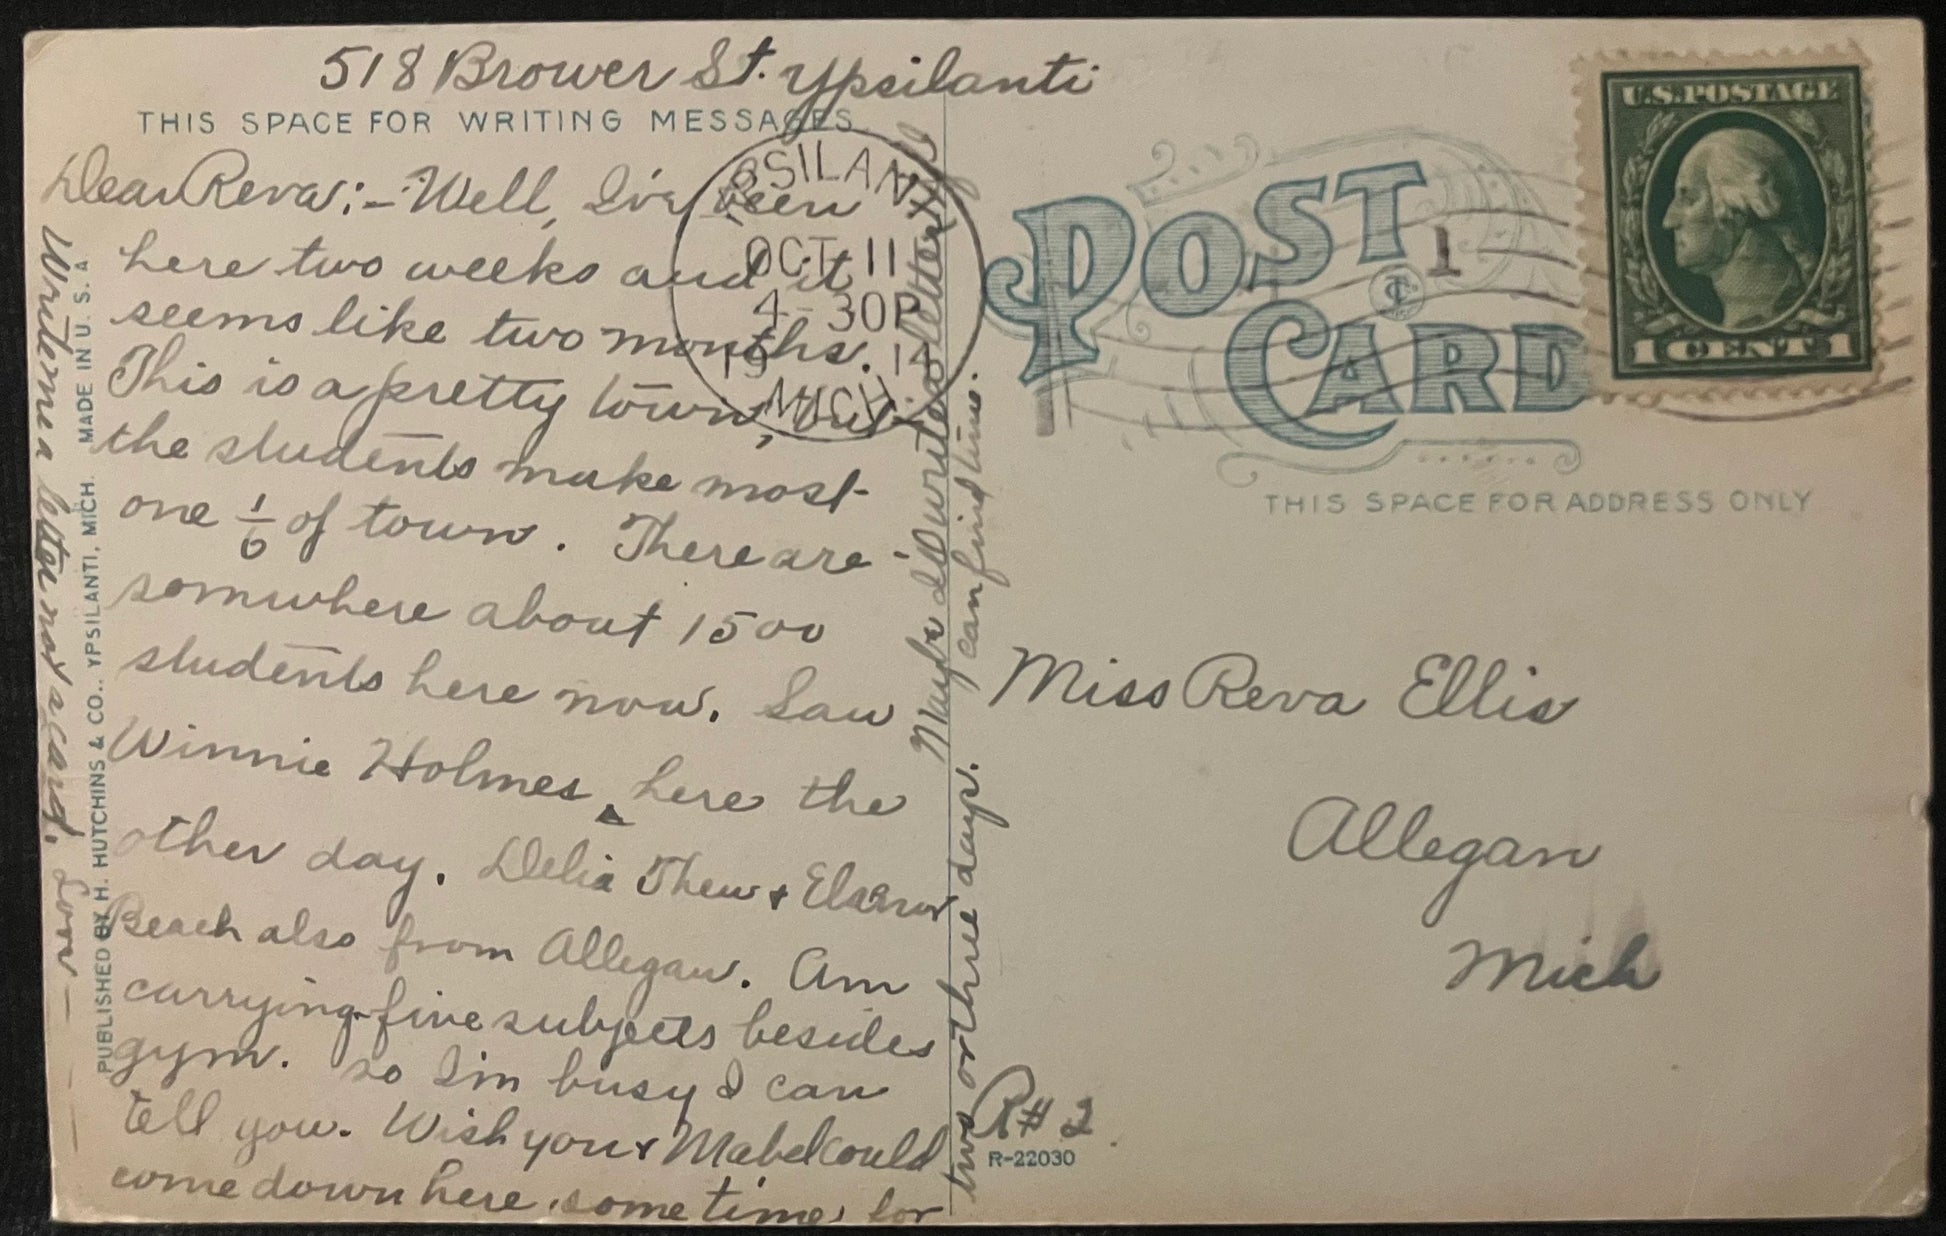 518 Brower St. Ypsilanti
THIS SPACE FOR WRITING MESSAGES
Dear Reva:- Well, I've been
here two weeks and it
seems like two months.
This is a pretty town, but
the students make most
one 1/6 of town. There are
somwhere about 1500
students here now. Saw
Winnie Holmes here the
other day. Delia Thew &
Beach also from Allegan. Am
carrying five subjects besides
gym. so I'm busy I can
tell you. Wish you & Mabel could
come down here some time for
two or three days.
Maybe I'll write a letter if I
can find time.
Write me a letter not a card. Love —
PUBLISHED BY H. HUTCHINS & CO., YPSILANTI, MICH. MADE IN U. S. A
YPSILANTI
OCT 11
4-30P
1914
MICH.
1
POST
CARD
U.S. POSTAGE
1 CENT 1
THIS SPACE FOR ADDRESS ONLY
Miss Reva Ellis
Allegan
Mich
R# 2.
R-22030